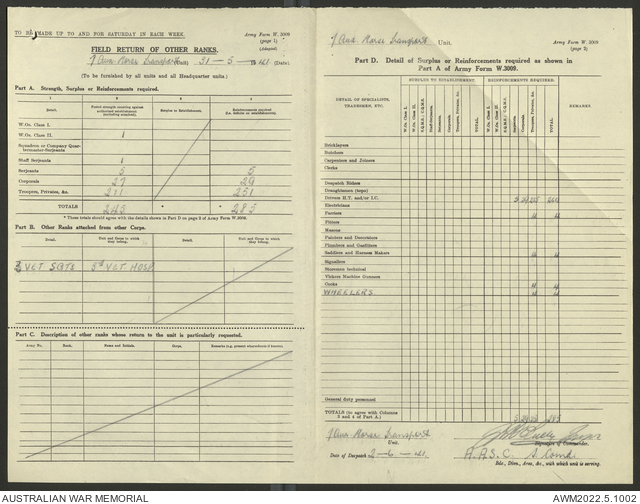 TO BE MADE UP TO AND FOR SATURDAY IN EACH WEEK.
Army Form W. 3009
(page 1)
(Adapted)
FIELD RETURN OF OTHER RANKS.
1 Aus. Horse Transport (Unit) 31-5-41 (Date)
(To be furnished by all units and all Headquarter units.)
Part A. Strength, Surplus or Reinforcements required.
1 2 3 4
Detail.
Surplus to Establishment.
W.Os. Class I.
W.Os. Class II. 1
Squadron or Company Quar-
termaster-Serjeants
Staff Serjeants 1
Serjeants 5 5
Corporals 27 29
Troopers, Privates, &c. 211 251
TOTALS 245 * 285
* These totals should agree with the details shown in Part D on page 2 of Army Form W.3009.
Part B. Other Ranks attached from other Corps.
Detail.
Unit and Corps to which they belong.
Detail.
Unit and Corps to which they belong.
2 VET SGTS 5th VET HOSP
Part C. Description of other ranks whose return to the unit is particularly requested.
Army No. Rank. Name and Initials. Corps.
1 Aus. Horse Transport Unit.
Army Form W. 3009
(page 2)
Part D. Detail of Surplus or Reinforcements required as shown in
Part A of Army Form W.3009.
SURPLUS TO ESTABLISHMENT. REINFORCEMENTS REQUIRED.
DETAIL OF SPECIALISTS,
TRADESMEN, ETC.
W.Os. Class I.
W.Os. Class II.
Staff-Serjeants.
Serjeants.
Corporals.
Troopers, Privates, &c.
TOTAL.
W.Os. Class I.
W.Os. Class II.
Serjeants.
Corporals.
Troopers, Privates, &c.
TOTAL.
REMARKS.
Bricklayers
Carpenters and Joiners
Clerks
Despatch Riders
Draughtsmen (topo)
Drivers H.T. and/or I.C.
Electricians
Farriers 4 4
Fitters
Masons
Painters and Decorators
Plumbers and Gasfitters
Saddlers and Harness Makers 4 4
Signallers
Storemen technical
Vickers Machine Gunners
Cooks 4 4
WHEELERS 4 4
General duty personnel
TOTALS (to agree with Columns
3 and 4 of Part A.) 285
1 Aus Horse Transport
Unit.
Signature of Commander.
Date of Despatch 2-6-41.
A.A.S.C.
Bde., Divn., Area, &c., with which unit is serving.
AUSTRALIAN WAR MEMORIAL
AWM2022.5.1002